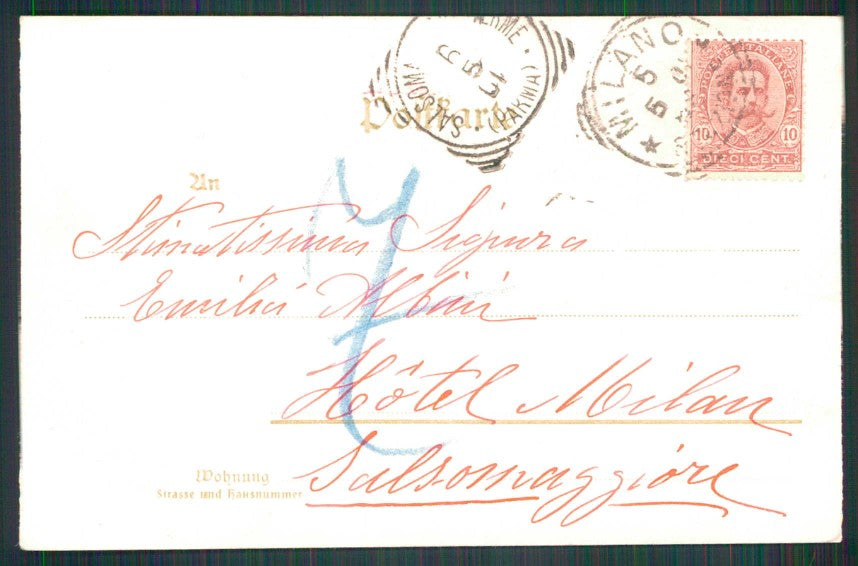 SALSOM
(PARMA)
MILANO
5 5
POSTE ITALIANE
10 10
DIECI CENT.
Postkarte
An
Stimatissima Signora
Emilia Albini
Hôtel Milan
Salsomaggiore
Wohnung
Strasse und Hausnummer
7